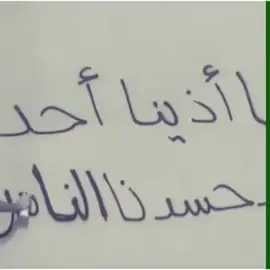 ا أذينا أحد
حسدنا الناس